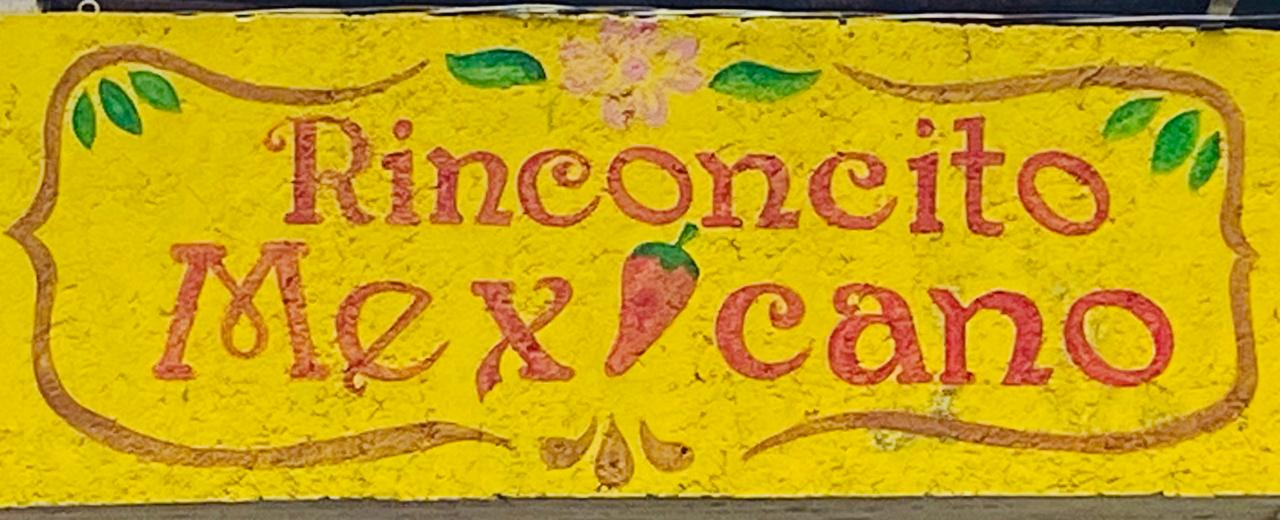 Rinconcito
Mexicano